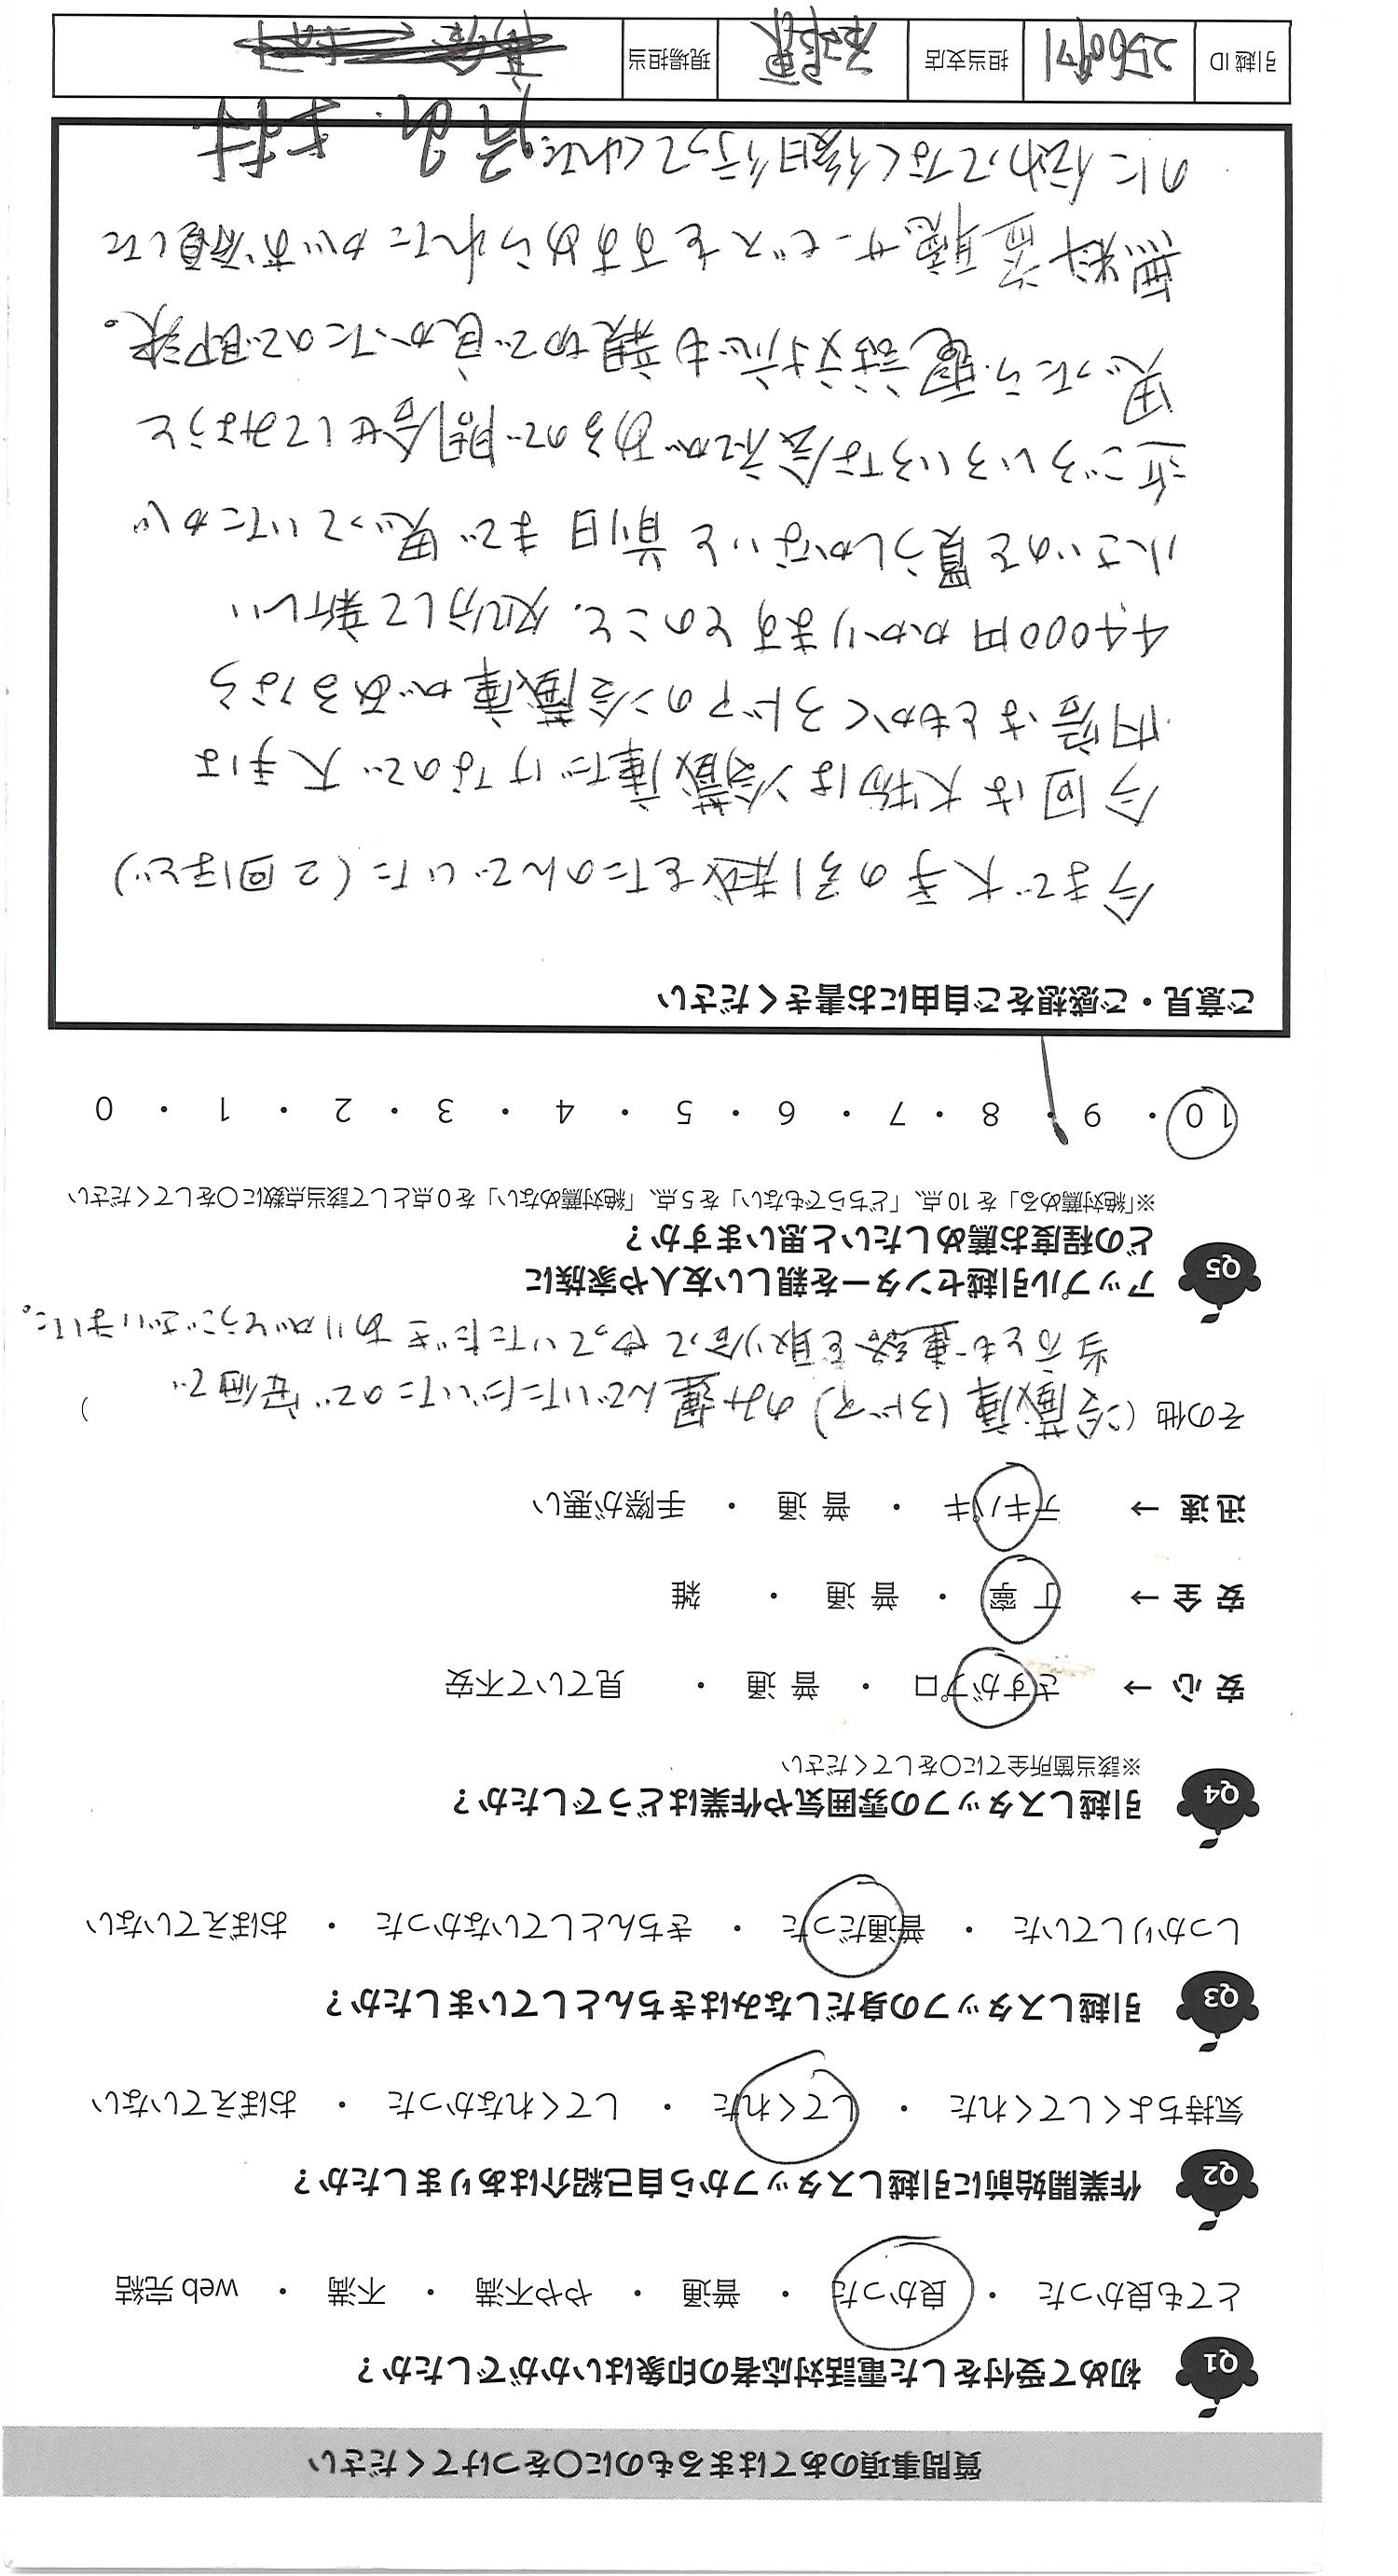 質問事項のあてはまるものに〇をつけてください
Q1 初めて受付をした電話対応者の印象はいかがでしたか？
とても良かった ・ 良かった ・ 普通 ・ やや不満 ・ 不満 ・ web 完結
Q2 作業開始前に引越しスタッフから自己紹介はありましたか？
気持ちよくしてくれた ・ してくれた ・ してくれなかった ・ おぼえていない
Q3 引越しスタッフの身だしなみはきちんとしていましたか？
しっかりしていた ・ 普通だった ・ きちんとしていなかった ・ おぼえていない
Q4 引越しスタッフの雰囲気や作業はどうでしたか？
※該当箇所全てに〇をしてください
安 心 → さすがプロ ・ 普 通 ・ 見ていて不安
安 全 → 丁 寧 ・ 普 通 ・ 雑
迅 速 → テキパキ ・ 普 通 ・ 手際が悪い
その他（冷蔵庫（3ドア）のみ運んでいただいたので安価で ）
当方とも連絡を取り合ってやっていただきありがとうございました。
Q5 アップル引越センターを親しい友人や家族に
どの程度お薦めしたいと思いますか？
※「絶対薦める」を 10 点、「どちらでもない」を 5 点、「絶対薦めない」を 0 点として該当点数に〇をしてください
10 ・ 9 ・ 8 ・ 7 ・ 6 ・ 5 ・ 4 ・ 3 ・ 2 ・ 1 ・ 0
ご意見・ご感想をご自由にお書きください
今まで大手の引越をたのんでいた（2回ほど）
今回は大物は冷蔵庫だけなので大手は
内容はともかく3ドアの冷蔵庫があるなら
44000円かかりますとのこと、処分して新しい
小さいのを買うしかないと前日まで思っていたが
近ごろいろいろな会社があるので問合せしてみようと
思ったら電話対応も親切で良かったので即決。
無料盗聴サービスをすすめられたがお宿直して
のに伝わってなく後日行ってくれた。
引越 ID 2560971 担当支店 現場担当